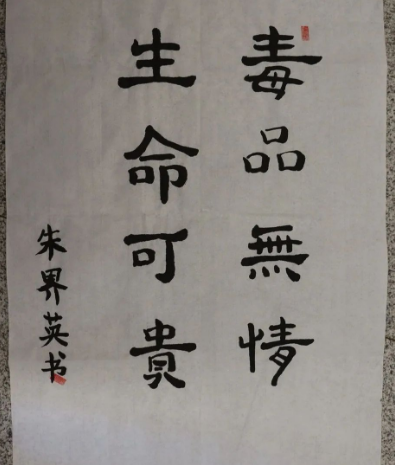 毒品無情
生命可貴
朱界英书